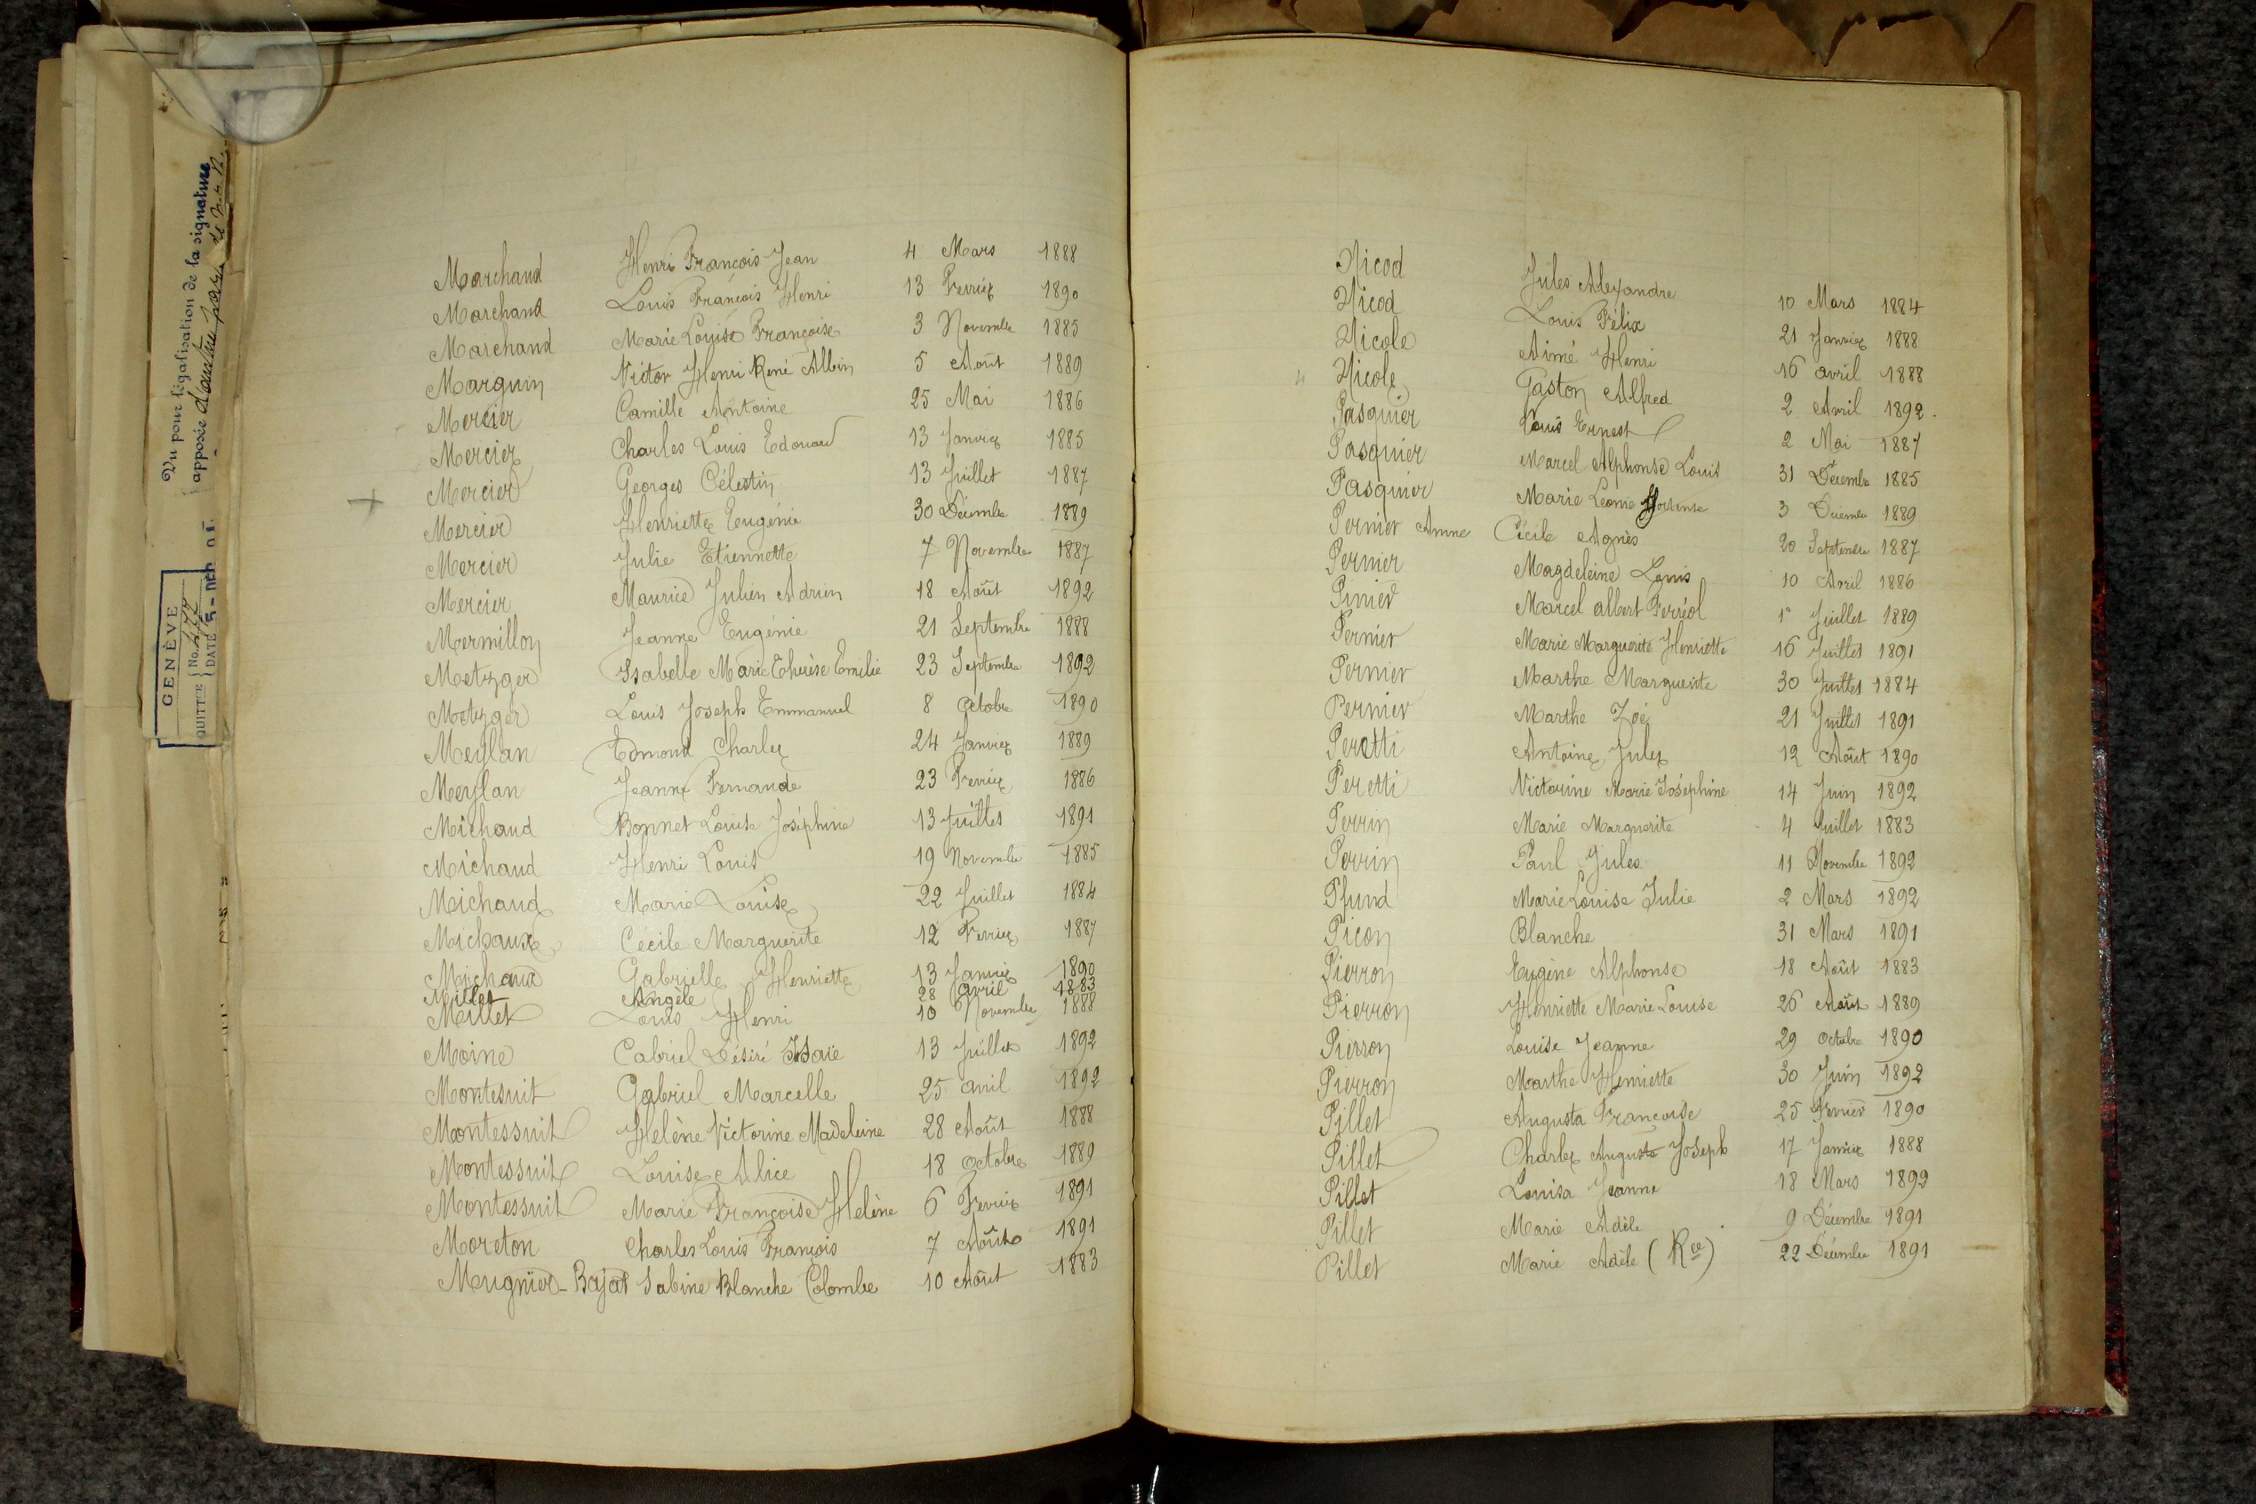 Vu pour légalisation de la signature
apposée d'autre part
GENÈVE
QUITTCE No. 472
DATE 5 - DEC 01
Marchand Henri François Jean 4 Mars 1888
Marchand Louis François Henri 13 Fevrier 1890
Marchand Marie Louise Françoise 3 Novembre 1885
Marguin Victor Henri René Albin 5 Août 1889
Mercier Camille Antoine 25 Mai 1886
Mercier Charles Louis Edouard 13 Janvier 1885
Mercier Georges Célestin 13 Juillet 1887
Mercier Henriette Eugénie 30 Décembre 1889
Mercier Julie Etiennette 7 Novembre 1887
Mercier Maurice Julien Adrien 18 Août 1892
Mermillon Jeanne Eugénie 21 Septembre 1888
Metzger Isabelle Marie Thérèse Emilie 23 Septembre 1892
Metzger Louis Joseph Emmanuel 8 Octobre 1890
Meylan Edmond Charles 24 Janvier 1889
Meylan Jeanne Fernande 23 Fevrier 1886
Michaud Bonnet Louise Joséphine 13 Juillet 1891
Michaud Henri Louis 19 Novembre 1885
Michaud Marie Louise 22 Juillet 1884
Michaux Cécile Marguerite 12 Fevrier 1887
Michaux Gabrielle Henriette 13 Janvier 1890
Millet Angèle 28 Avril 1883
Millet Louis Henri 10 Novembre 1888
Moine Cabriel Désiré Isaïe 13 Juillet 1892
Montesuit Gabriel Marcelle 25 avril 1892
Montessuit Helène Victorine Madeleine 28 Août 1888
Montessuit Louise Alice 18 octobre 1889
Montessuit Marie Françoise Helène 6 Fevrier 1891
Moreton Charles Louis François 7 Août 1891
Mugnier-Bajat Sabine Blanche Colombe 10 Août 1883
Nicod Jules Alexandre 10 Mars 1884
Nicod Louis Félix 21 Janvier 1888
Nicole Aimé Henri 16 avril 1888
Nicole Gaston Alfred 2 Avril 1892
Pasquier Louis Ernest 2 Mai 1887
Pasquier Marcel Alphonse Louis 31 Décembre 1885
Pasquier Marie Leonie Hortense 3 Décembre 1889
Pernier Anne Cécile Agnès 20 Septembre 1887
Pernier Magdeleine Louis 10 Avril 1886
Pinier Marcel Albert Ferréol 1er Juillet 1889
Pernier Marie Marguerite Henriette 16 Juillet 1891
Pernier Marthe Marguerite 30 Juillet 1884
Pernier Marthe Zoé 21 Juillet 1891
Peretti Antoine Jules 12 Août 1890
Peretti Victorine Marie Joséphine 14 Juin 1892
Perrin Marie Marguerite 4 Juillet 1883
Perrin Paul Jules 11 Novembre 1892
Pfund Marie Louise Julie 2 Mars 1892
Picon Blanche 31 Mars 1891
Pierron Eugène Alphonse 18 Août 1883
Pierron Henriette Marie Louise 26 Août 1889
Pierron Louise Jeanne 29 Octobre 1890
Pierron Marthe Henriette 30 Juin 1892
Pillet Augusta Françoise 25 Fevrier 1890
Pillet Charles Auguste Joseph 17 Janvier 1888
Pillet Louisa Jeanne 18 Mars 1892
Pillet Marie Adèle 9 Décembre 1891
Pillet Marie Adèle (Rce) 22 Décembre 1891